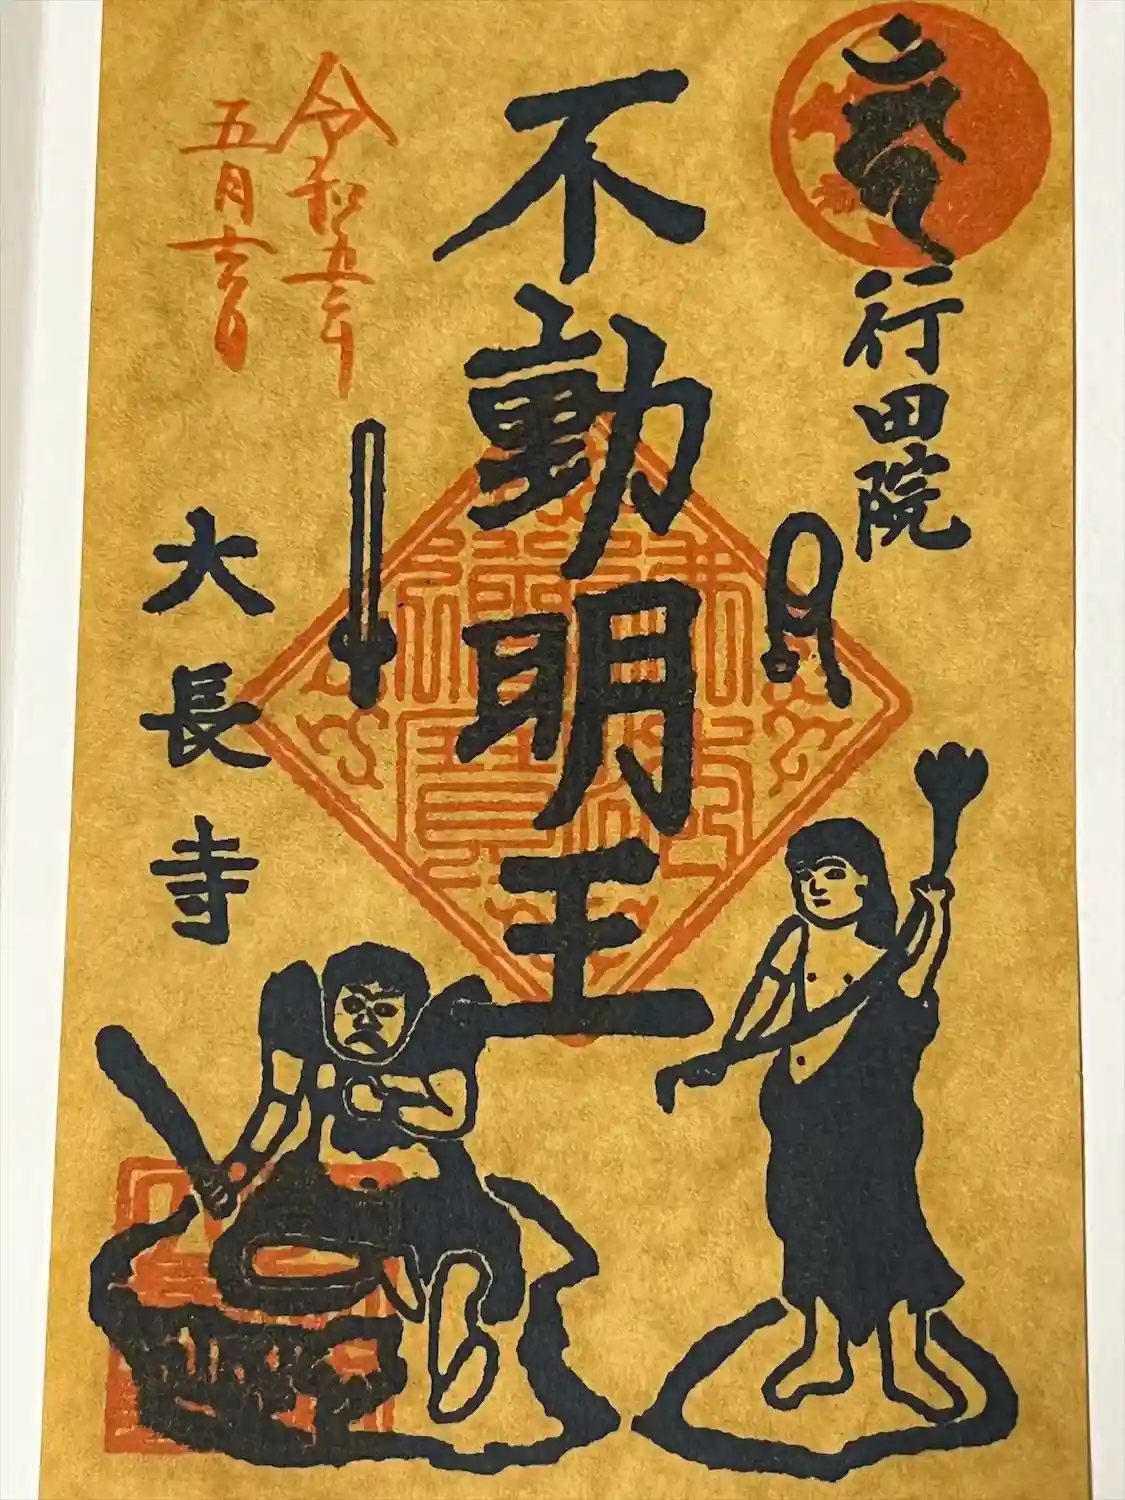 行田院
不動明王
令和五年
五月
大長寺